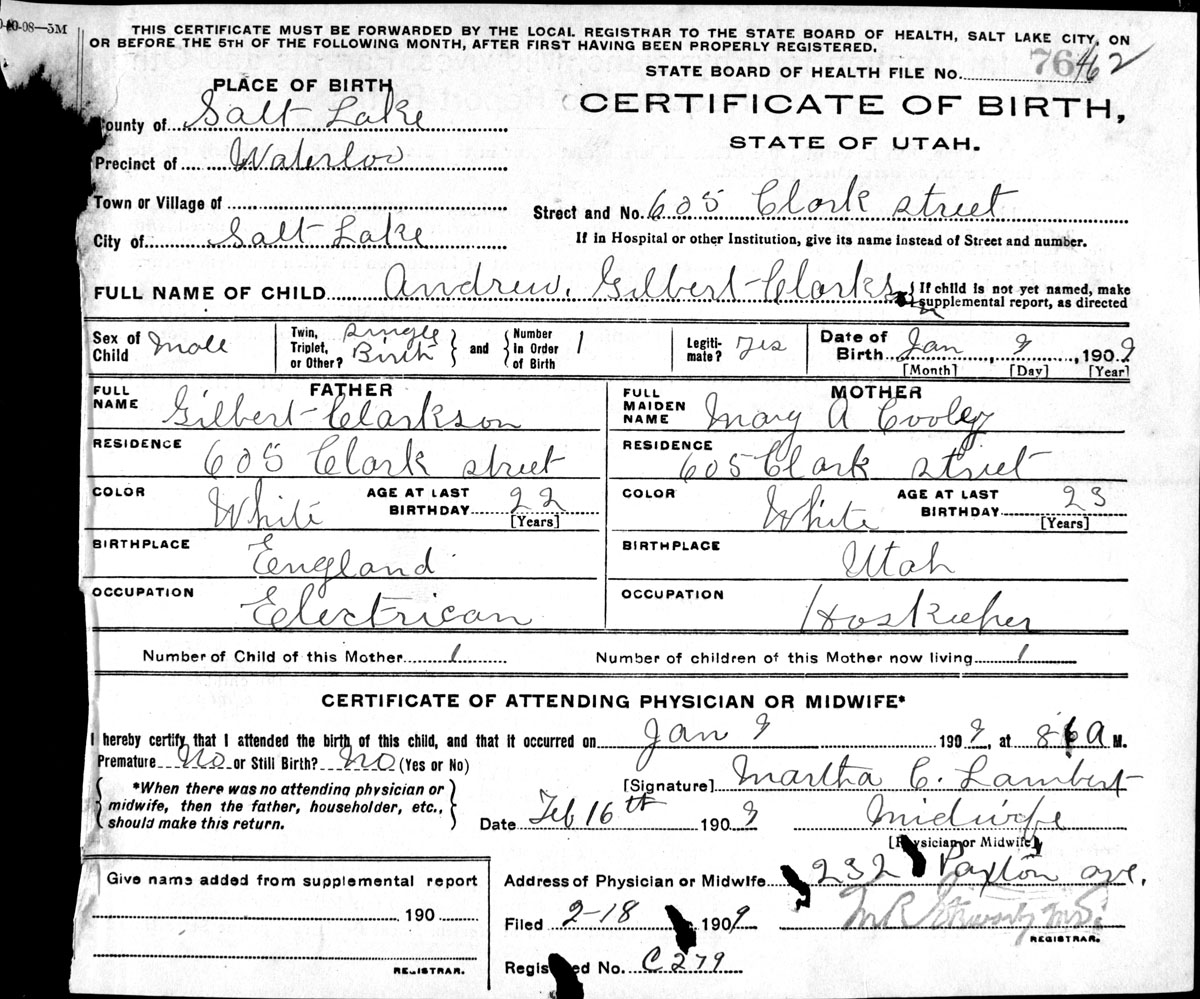 0-08—5M
THIS CERTIFICATE MUST BE FORWARDED BY THE LOCAL REGISTRAR TO THE STATE BOARD OF HEALTH, SALT LAKE CITY, ON
OR BEFORE THE 5TH OF THE FOLLOWING MONTH, AFTER FIRST HAVING BEEN PROPERLY REGISTERED.
STATE BOARD OF HEALTH FILE No. 76462
PLACE OF BIRTH
CERTIFICATE OF BIRTH,
STATE OF UTAH.
County of Salt Lake
Precinct of Waterloo
Town or Village of
Street and No. 605 Clark street
City of Salt Lake
If in Hospital or other Institution, give its name instead of Street and number.
FULL NAME OF CHILD Andrew. Gilbert Clarks
{ If child is not yet named, make supplemental report, as directed
Sex of Child Male Twin, Triplet, or Other? Single Birth and Number In Order of Birth 1 Legitimate? Yes Date of Birth Jan 9, 1909
[Month] [Day] [Year]
FATHER MOTHER
FULL NAME Gilbert Clarkson FULL MAIDEN NAME Mary A Cooley
RESIDENCE 605 Clark street RESIDENCE 605 Clark street
COLOR White AGE AT LAST BIRTHDAY 22 [Years] COLOR White AGE AT LAST BIRTHDAY 23 [Years]
BIRTHPLACE England BIRTHPLACE Utah
OCCUPATION Electrican OCCUPATION Hoskieper
Number of Child of this Mother 1 Number of children of this Mother now living 1
CERTIFICATE OF ATTENDING PHYSICIAN OR MIDWIFE*
I hereby certify that I attended the birth of this child, and that it occurred on Jan 9 1909, at 8 A M.
Premature No or Still Birth? No (Yes or No)
[Signature] Martha C. Lambert
{ *When there was no attending physician or midwife, then the father, householder, etc., should make this return. }
Date Feb 16th 1909 Midwife
[Physician or Midwife]
Give name added from supplemental report
Address of Physician or Midwife 232 Paxton ave.
190
Filed 2-18 1909
REGISTRAR.
REGISTRAR.
Registered No. C279